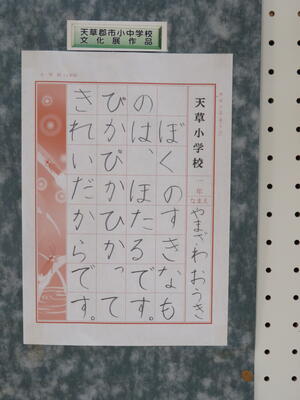 天草郡市小中学校
文化展作品
天草小学校
一年
なまえ
やまざわおうき
ぼくのすきなも
のは、ほたるです。
ぴかぴかひかって
きれいだからです。